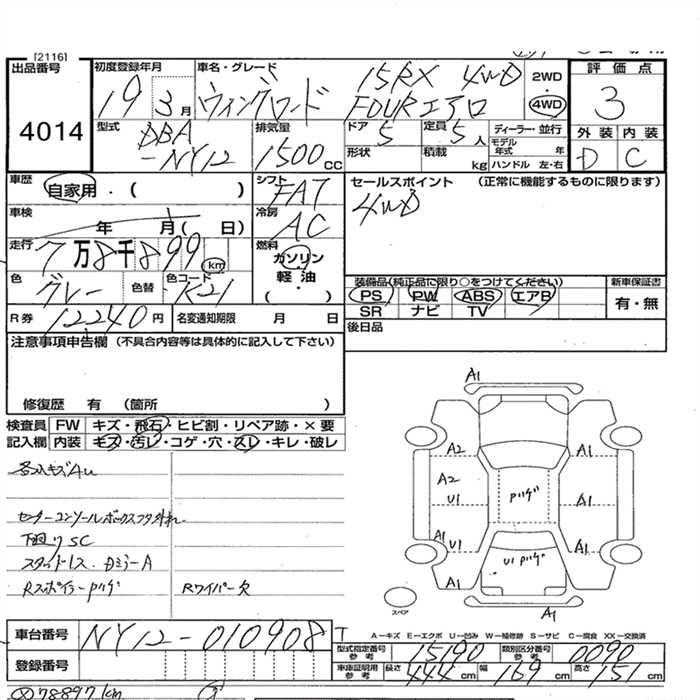 [2116]
出品番号
4014
初度登録年月
19年 3月
車名・グレード
ウィングロード
15RX 4WD
FOURエアロ
2WD
・
4WD
評価点
3
外装 内装
D C
型式
DBA
-NY12
排気量
1500 CC
ドア 5
定員 5人
形状
積載 kg
ディーラー・並行
モデル年式 年
ハンドル 左・右
車歴 自家用・( )
シフト FAT
セールスポイント (正常に機能するものに限ります)
4WD
車検 年 月( 日)
冷房 AC
走行 7万8千899 km
燃料 ガソリン
軽油
( )
色 グレー 色替 色コード K21
装備品(純正品に限り○をつけてください)
PS PW ABS エアB
SR ナビ TV
新車保証書
有・無
R券 12240円
名変通知期限 月 日
後日品
注意事項申告欄 (不具合内容等は具体的に記入して下さい)
修復歴 有 (箇所 )
検査員 FW キズ・飛石・ヒビ割・リペア跡・×要
記入欄 内装 キズ・汚レ・コゲ・穴・スレ・キレ・破レ
各所キズAU
センターコンソールボックスフタ外れ
下廻りSC
スタッドレス.DミラーA
RスポイラーPハゲ Rワイパー欠
A1
A2 A1
A2
U1
Pハゲ
A1
A1
U1
U1 Pハゲ
A1
A1 A1
A1
スペア
車台番号 NY12-010908
登録番号
A-キズ E-エクボ U-凹み W-補修跡 S-サビ C-腐食 XX-交換済
型式指定番号 参考 15190
類別区分番号 参考 0090
車庫証明用 参考 長さ 444cm 幅 169cm 高さ 151cm
78897km